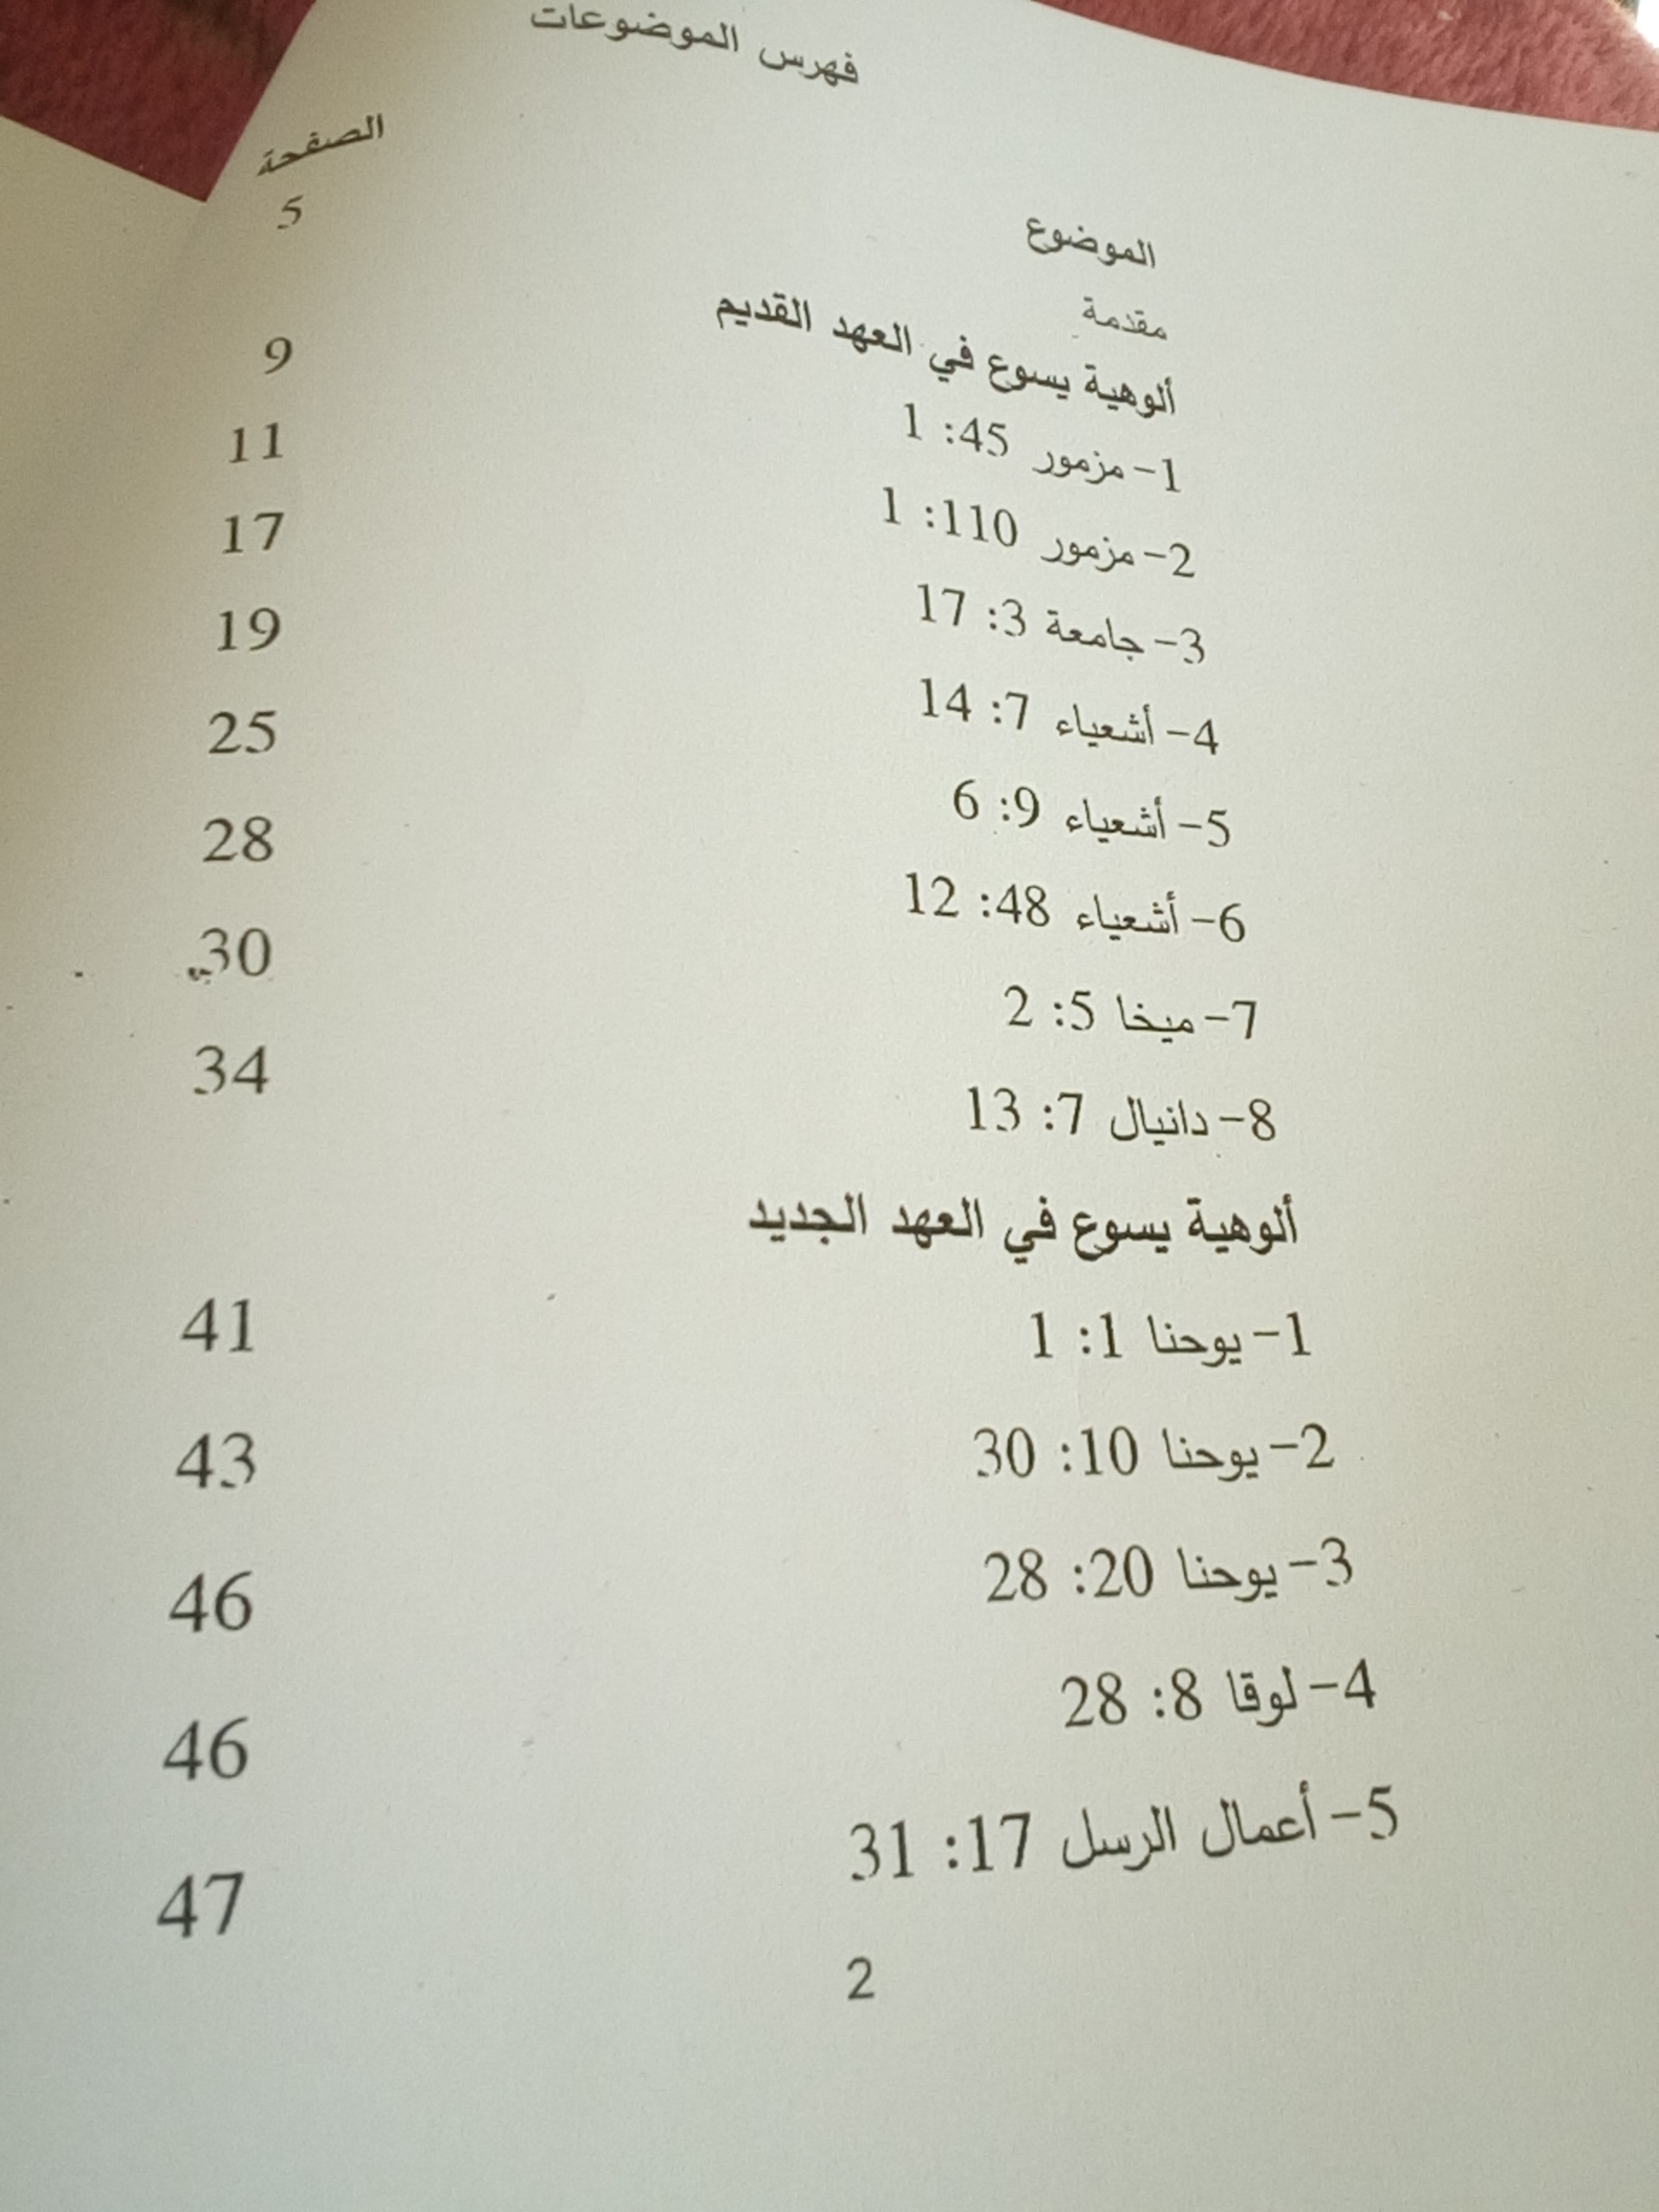 فهرس الموضوعات
الموضوع الصفحة
مقدمة 5
ألوهية يسوع في العهد القديم
1- مزمور 45: 1 9
2- مزمور 110: 1 11
3- جامعة 3: 17 17
4- أشعياء 7: 14 19
5- أشعياء 9: 6 25
6- أشعياء 48: 12 28
7- ميخا 5: 2 30
8- دانيال 7: 13 34
ألوهية يسوع في العهد الجديد
1- يوحنا 1: 1 41
2- يوحنا 10: 30 43
3- يوحنا 20: 28 46
4- لوقا 8: 28 46
5- أعمال الرسل 17: 31 47
2